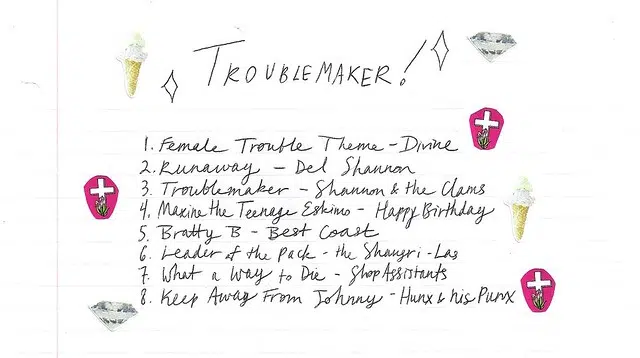 TROUBLEMAKER!
1. Female Trouble Theme - Divine
2. Runaway - Del Shannon
3. Troublemaker - Shannon & the Clams
4. Maxine the Teenage Eskimo - Happy Birthday
5. Bratty B - Best Coast
6. Leader of the Pack - the Shangri-Las
7. What a Way to Die - Shop Assistants
8. Keep Away From Johnny - Hunx & his Punx